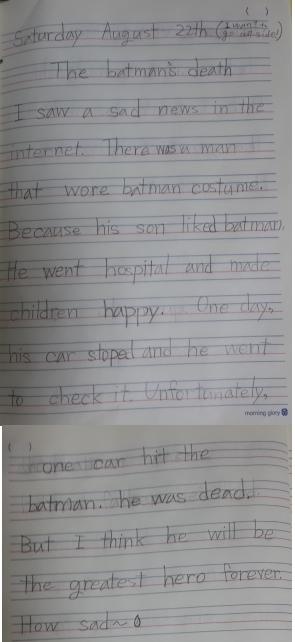 ( )
Saturday August 22th (I want to
go outside!)
The batman's death
I saw a sad news in the
internet. There was a man
that wore batman costume.
Because his son liked batman.
He went hospital and made
children happy. One day,
his car stoped and he went
to check it. Unfortunately,
morning glory
( )
one car hit the
batman. he was dead.
But I think he will be
the greatest hero forever.
How sad~